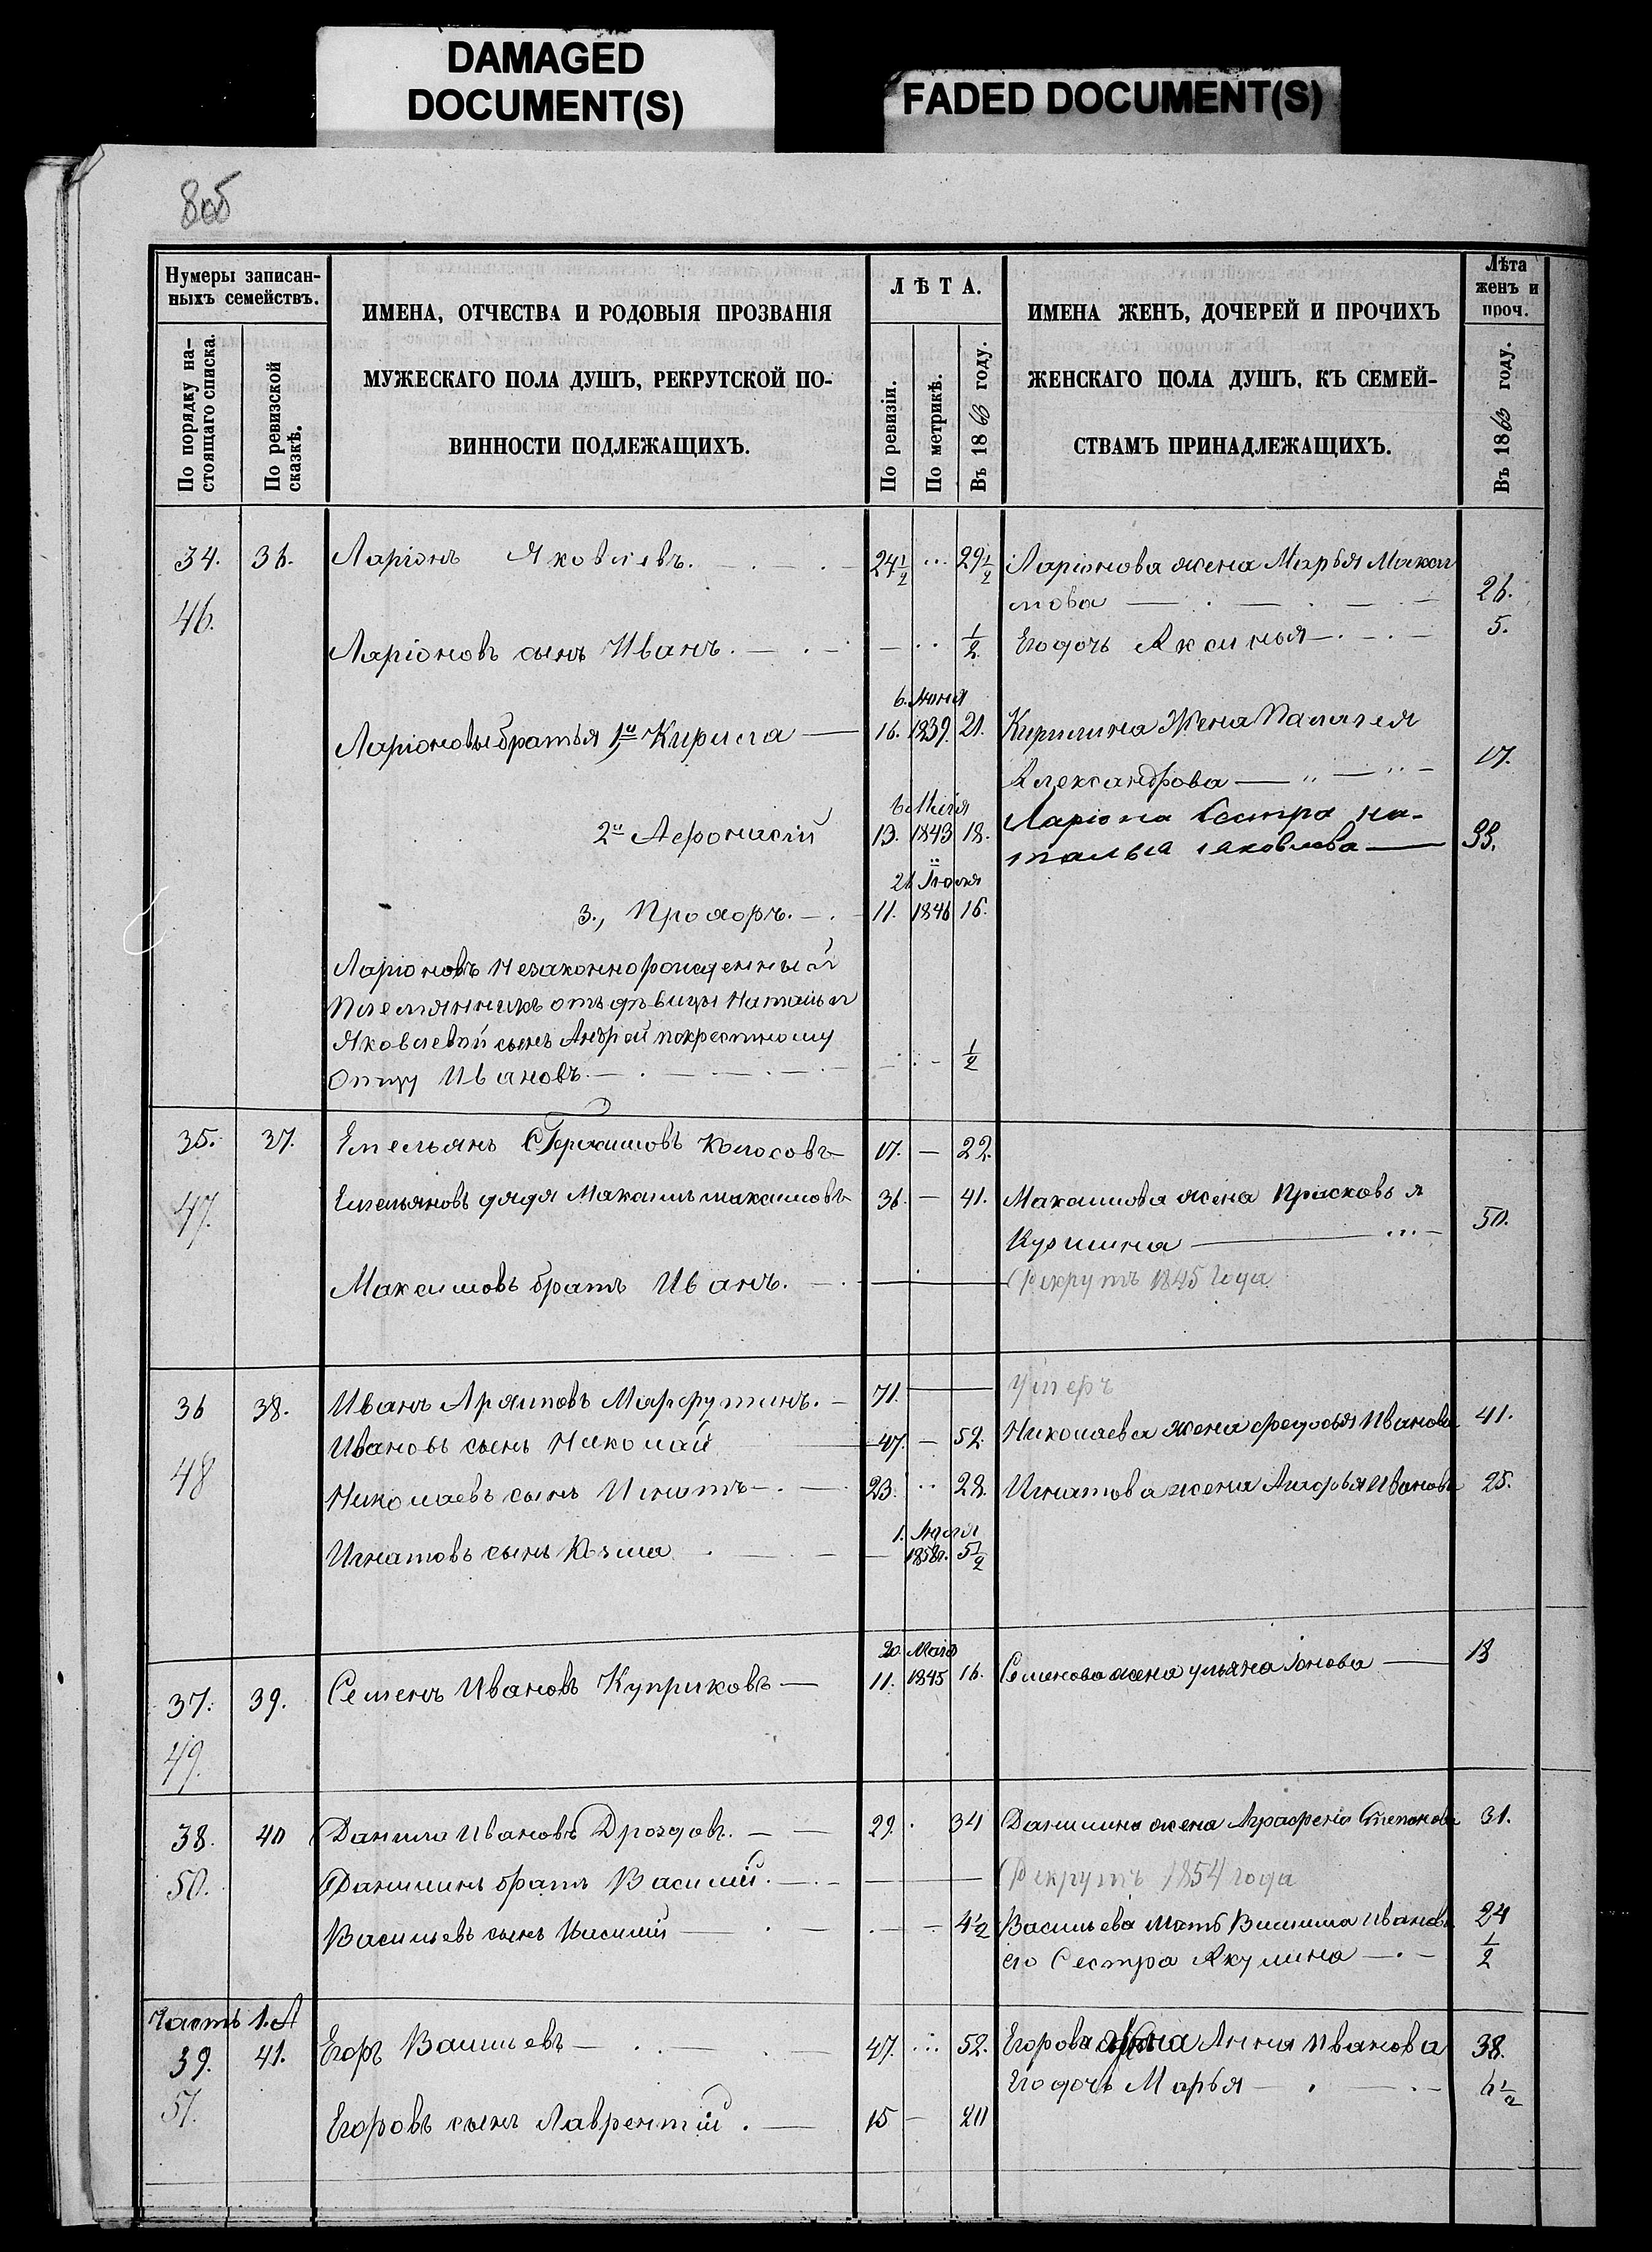 DAMAGED
DOCUMENT(S)
FADED DOCUMENT(S)
8об
Нумеры записан-
ныхъ семействъ.
По порядку на-
стоящаго списка.
По ревизской
сказкѣ.
ИМЕНА, ОТЧЕСТВА И РОДОВЫЯ ПРОЗВАНІЯ
МУЖЕСКАГО ПОЛА ДУШЪ, РЕКРУТСКОЙ ПО-
ВИННОСТИ ПОДЛЕЖАЩИХЪ.
ЛѢТА.
По ревизіи.
По метрикѣ.
Въ 1863 году.
ИМЕНА ЖЕНЪ, ДОЧЕРЕЙ И ПРОЧИХЪ
ЖЕНСКАГО ПОЛА ДУШЪ, КЪ СЕМЕЙ-
СТВАМЪ ПРИНАДЛЕЖАЩИХЪ.
Лѣта
женъ и
проч.
Въ 1863 году.
34. 36. Ларіонъ Яковлевъ. 24 1/2 29 1/2 Ларіонова жена Марья Макси
46. мова 26.
Ларіоновъ сынъ Иванъ. 1/2 Его дочь Аксинья 5.
6. Июня
Ларіоновы братья 1й Кирила 16. 1839. 21. Кирилина Жена Палагея
Александрова 17.
2й Афонасій 13. 1843 18. Ларіона Сестра На-
талья яковлева 33.
21 Іюля
3., Прохоръ. 11. 1846 16.
Ларіоновъ Незаконнорожденный
Племянникъ отъ дѣвицы Натальи
Яковлевой сынъ Андрей покрестному
Отцу Ивановъ. 1/2
35. 37. Емельянъ Герасимовъ Колосовъ 17. 22.
47. Емельяновъ дядя Максимъ максимовъ 36. 41. Максимова жена Прасковья
Курилина 50.
Максимовъ братъ Иванъ. Рекрутъ 1845 года
36 38. Иванъ Архиповъ 71. Умеръ
Ивановъ сынъ Николай 47. 52. Николаева жена федосья Иванова 41.
48 Николаевъ сынъ Игнатъ 23. 28. Игнатова жена Иванова 25.
1. Июля
Игнатовъ сынъ Козма 1858г. 5 1/2
20. Маія
37. 39. Семенъ Ивановъ Куприковъ 11. 1845 16. Семенова жена ульяна Іонова 18
49.
38. 40 Данила Ивановъ Дроздовъ. 29. 34 Данилина жена Аграфена Степанова 31.
50. Данилинъ братъ Василій. Рекрутъ 1854 года
Васильевъ сынъ Василій 4 1/2 Васильева мать Иванова 24
его Сестра Акулина 1/2
Часть 1.А
39. 41. Егоръ Васильевъ 47. 52. Егорова жена Анна Иванова 38.
51. Его дочь Марья 6 1/2
Егоровъ сынъ Лаврентій. 15 20